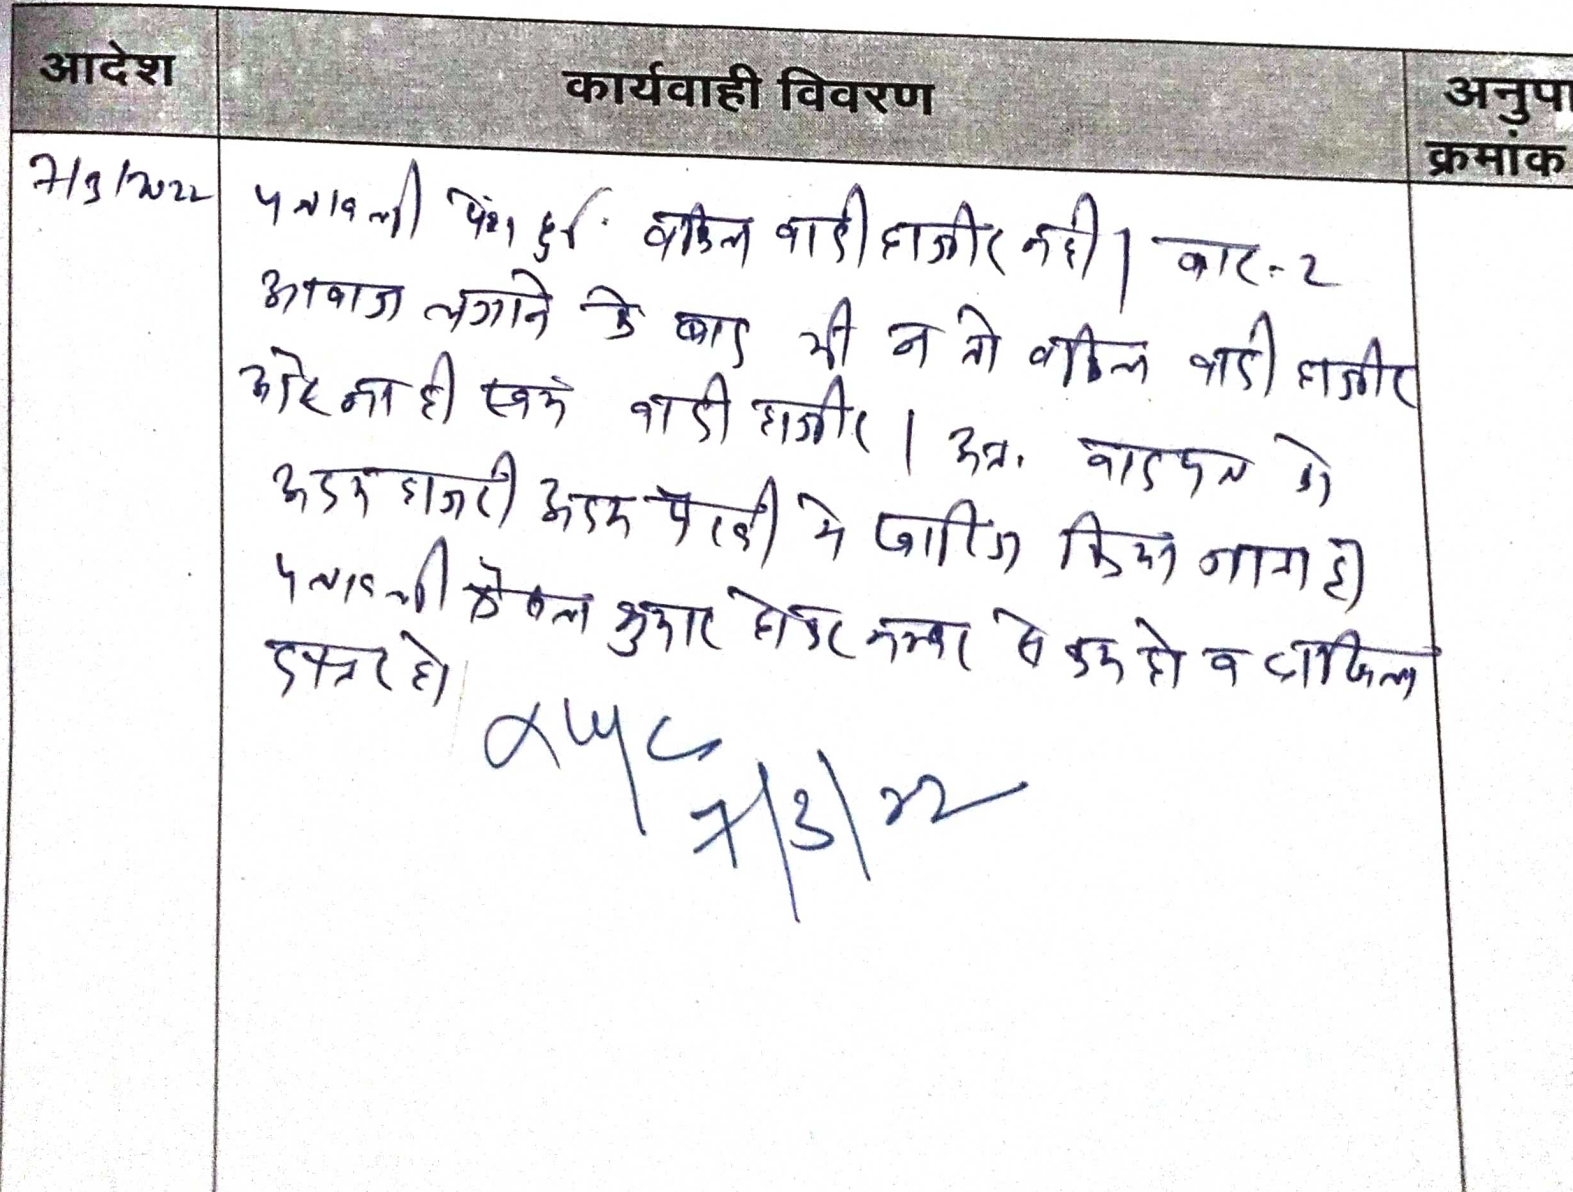 आदेश
कार्यवाही विवरण
अनुपा
क्रमांक
7/3/2022
पत्रावली पेश हुई. वकिल वादी हाजीर नही। बार-2
आवाज लगाने के बाद भी न तो वकिल वादी हाजीर
और ना ही स्वयं वादी हाजीर। अतः वादपत्र को
अदम हाजरी अदम पैरवी मे खारिज किया जाता है।
पत्रावली फैसल शुमार होकर नम्बर से कम हो व दाखिल
दफ्तर हो।
7/3/22